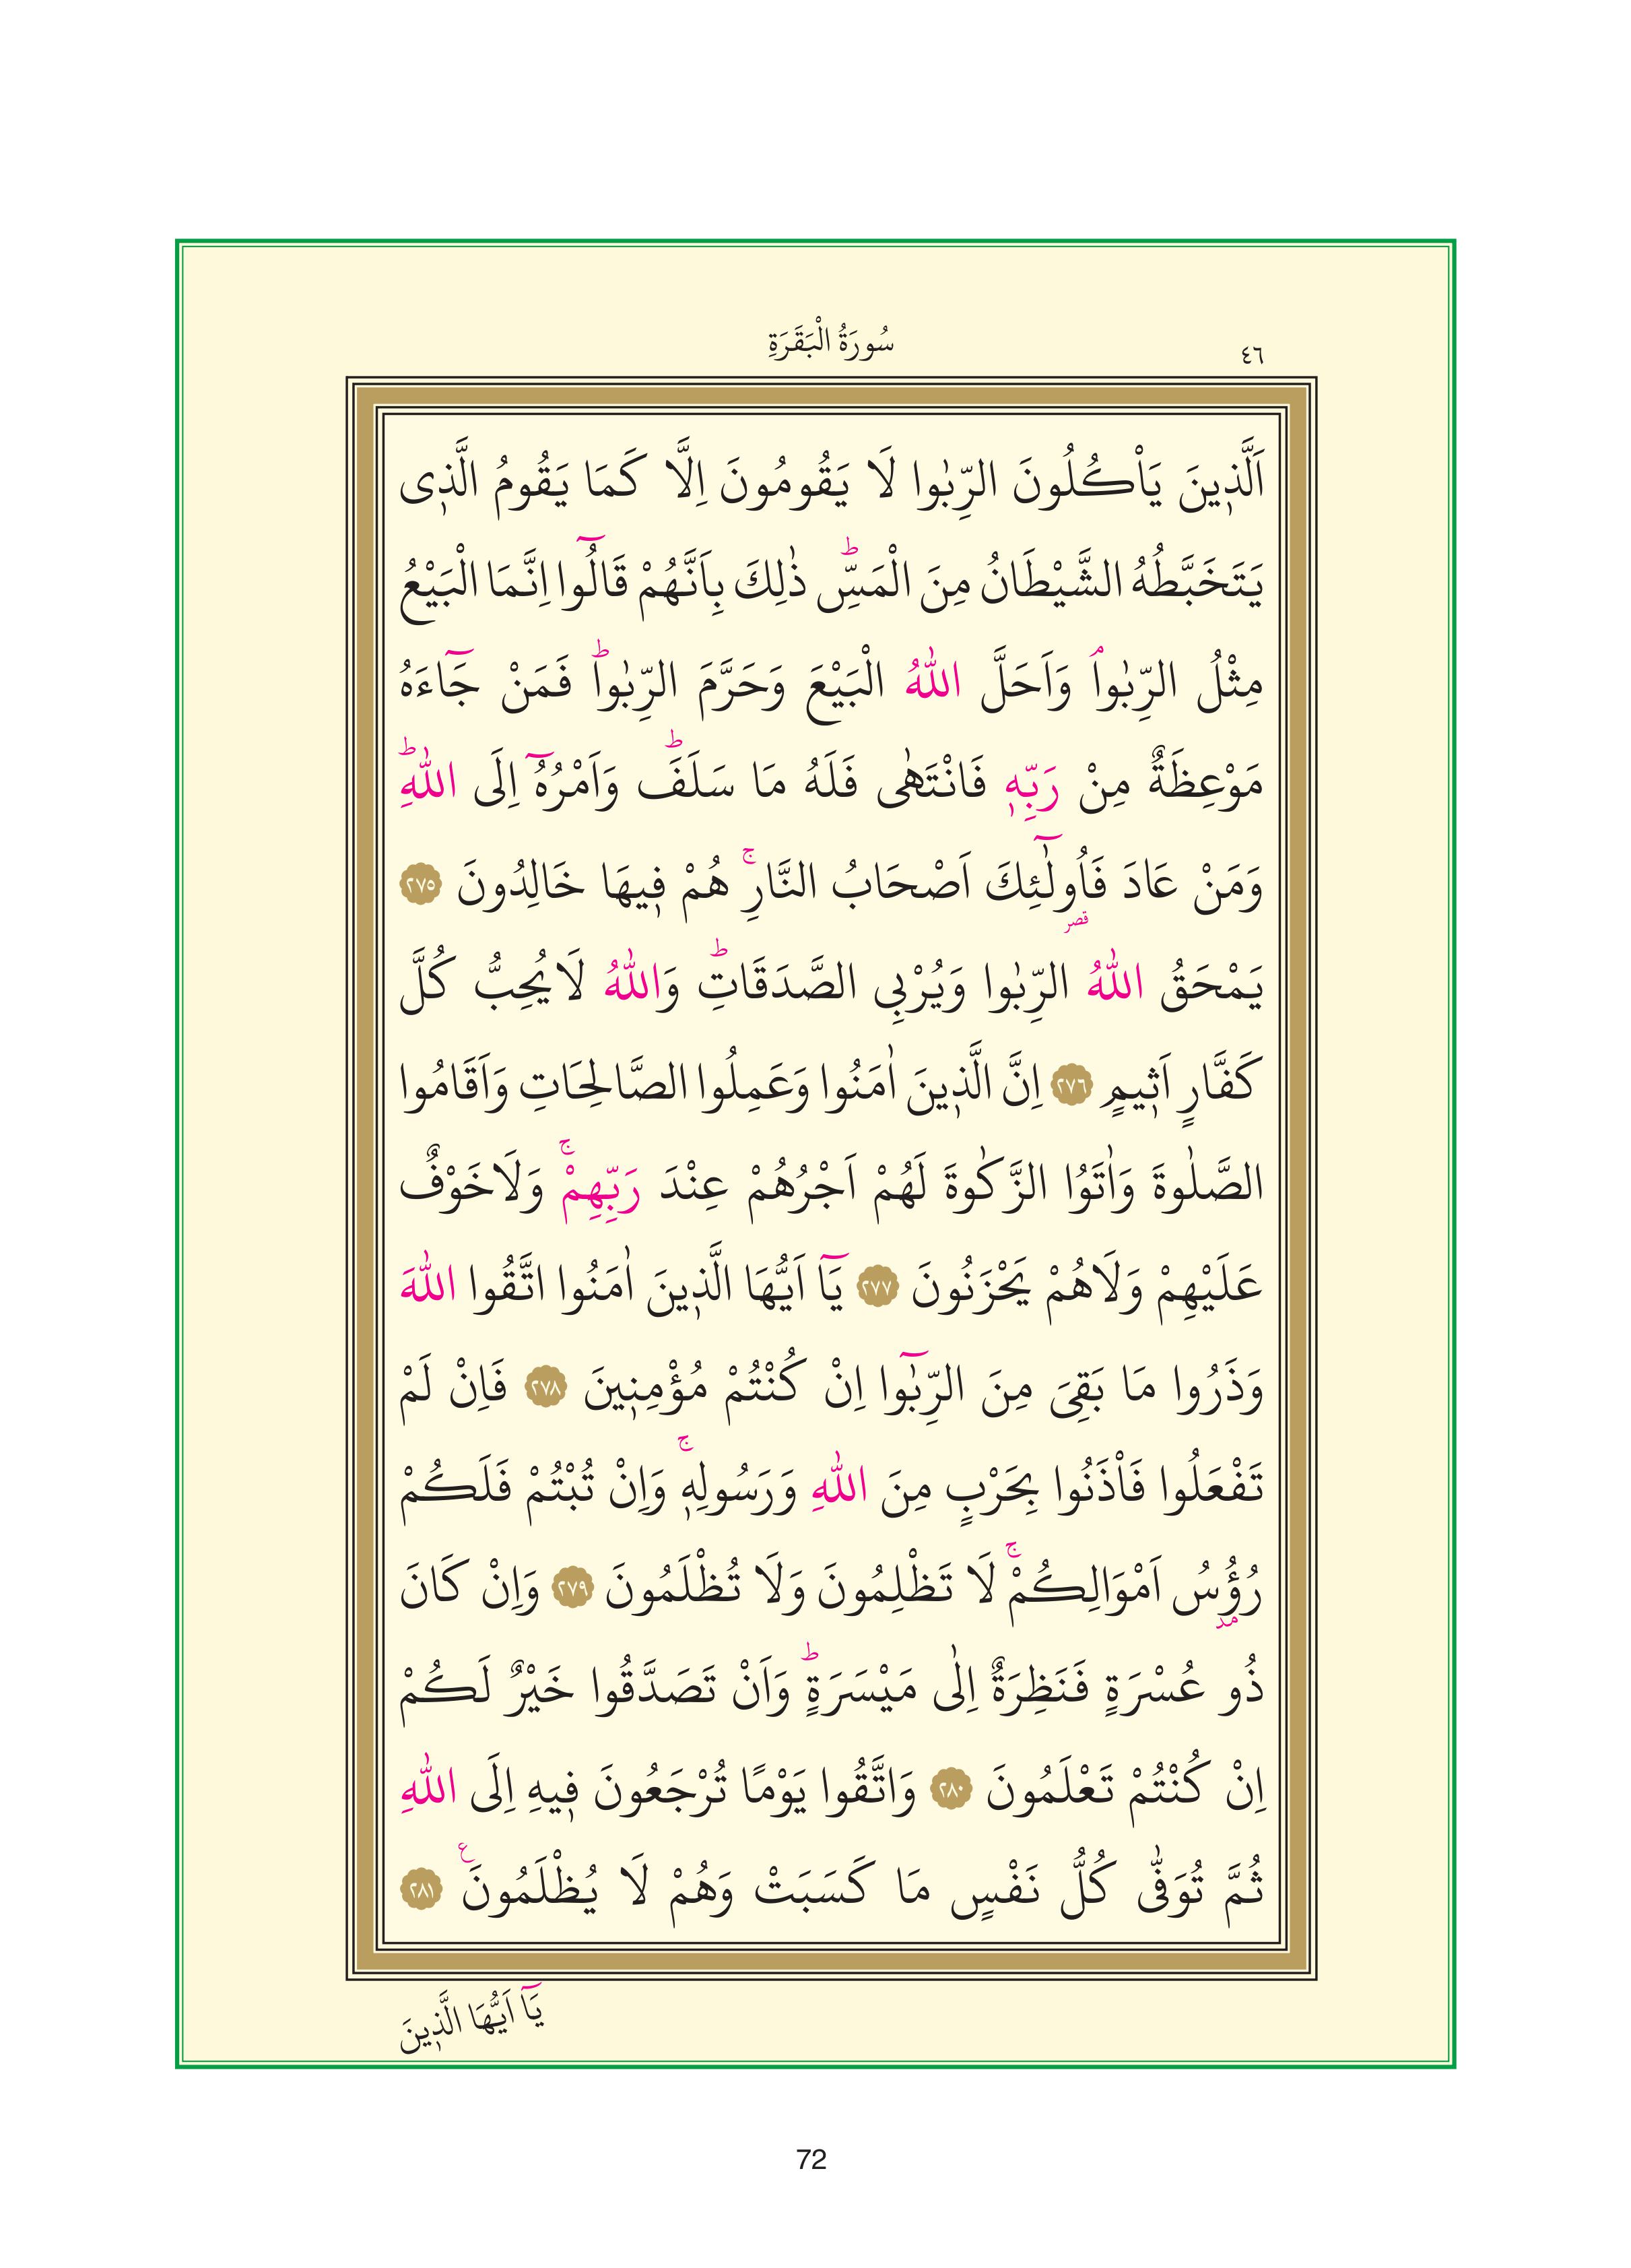 ٤٦
سُورَةُ الْبَقَرَةِ
اَلَّذ۪ينَ يَأْكُلُونَ الرِّبٰوا لَا يَقُومُونَ اِلَّا كَمَا يَقُومُ الَّذ۪ى
يَتَخَبَّطُهُ الشَّيْطَانُ مِنَ الْمَسِّۜ ذٰلِكَ بِاَنَّهُمْ قَالُٓوا اِنَّمَا الْبَيْعُ
مِثْلُ الرِّبٰواۢ وَاَحَلَّ اللّٰهُ الْبَيْعَ وَحَرَّمَ الرِّبٰواۜ فَمَنْ جَٓاءَهُ
مَوْعِظَةٌ مِنْ رَبِّه۪ فَانْتَهٰى فَلَهُ مَا سَلَفَۜ وَاَمْرُهُٓ اِلَى اللّٰهِۜ
وَمَنْ عَادَ فَاُو۬لٰٓئِكَ اَصْحَابُ النَّارِۚ هُمْ ف۪يهَا خَالِدُونَ ﴿٢٧٥﴾
قصر
يَمْحَقُ اللّٰهُ الرِّبٰوا وَيُرْبِى الصَّدَقَاتِۜ وَاللّٰهُ لَا يُحِبُّ كُلَّ
كَفَّارٍ اَث۪يمٍ ﴿٢٧٦﴾ اِنَّ الَّذ۪ينَ اٰمَنُوا وَعَمِلُوا الصَّالِحَاتِ وَاَقَامُوا
الصَّلٰوةَ وَاٰتَوُا الزَّكٰوةَ لَهُمْ اَجْرُهُمْ عِنْدَ رَبِّهِمْۚ وَلَا خَوْفٌ
عَلَيْهِمْ وَلَا هُمْ يَحْزَنُونَ ﴿٢٧٧﴾ يَٓا اَيُّهَا الَّذ۪ينَ اٰمَنُوا اتَّقُوا اللّٰهَ
وَذَرُوا مَا بَقِىَ مِنَ الرِّبٰٓوا اِنْ كُنْتُمْ مُؤْمِن۪ينَ ﴿٢٧٨﴾ فَاِنْ لَمْ
تَفْعَلُوا فَأْذَنُوا بِحَرْبٍ مِنَ اللّٰهِ وَرَسُولِه۪ۚ وَاِنْ تُبْتُمْ فَلَكُمْ
رُؤُ۫سُ اَمْوَالِكُمْۚ لَا تَظْلِمُونَ وَلَا تُظْلَمُونَ ﴿٢٧٩﴾ وَاِنْ كَانَ
مد
ذُو عُسْرَةٍ فَنَظِرَةٌ اِلٰى مَيْسَرَةٍۜ وَاَنْ تَصَدَّقُوا خَيْرٌ لَكُمْ
اِنْ كُنْتُمْ تَعْلَمُونَ ﴿٢٨٠﴾ وَاتَّقُوا يَوْمًا تُرْجَعُونَ ف۪يهِ اِلَى اللّٰهِ
ثُمَّ تُوَفّٰى كُلُّ نَفْسٍ مَا كَسَبَتْ وَهُمْ لَا يُظْلَمُونَ ع ﴿٢٨١﴾
يَٓا اَيُّهَا الَّذ۪ينَ
72